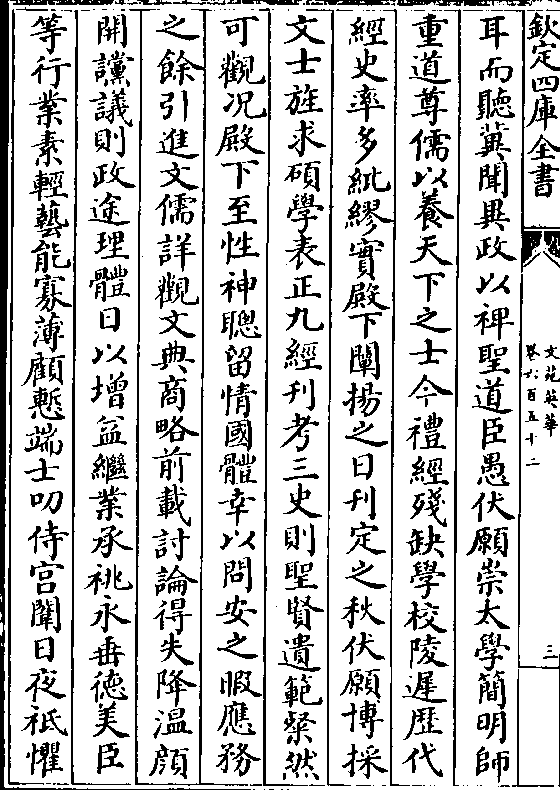 欽定四庫全書
文苑英華
卷六百五十二
三
耳而聽冀聞異政以禆聖道臣愚伏願崇太學簡明師
重道尊儒以養天下之士今禮經殘缺學校陵遲歷代
經史率多紕繆實殿下闡揚之日刊定之秋伏願博採
文士旌求碩學表正九經刊考三史則聖賢遺範粲然
可觀况殿下至性神聰留情國體幸以問安之暇應務
之餘引進文儒詳觀文典商略前載討論得失降溫顔
開讜議則政途理體日以增益繼業承祧永垂德美臣
等行業素輕藝能寡薄顧慙端士叨侍宫闈日夜祗懼